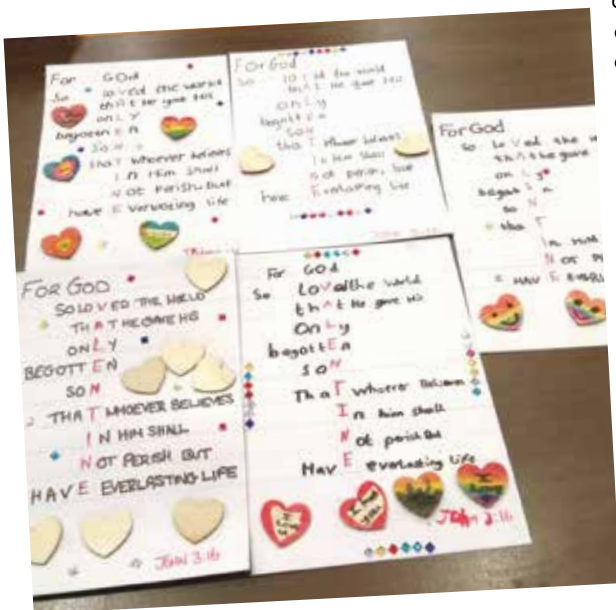 For GOd
So loved the world
thAt He gave His
onLy
begottEn
SoN
thaT whoever believes
In Him shall
Not Perish, but
have Everlasting life
For God
So loved the world
thAt He gave His
onLy
begottEn
SoN
thaT whoever believes
In Him shall
Not perish, but
have Everlasting life
JOHN 3:16
For God
so loVed the
thAt he gave
onLy
begotEn
soN
thaT
In Him
NOt
HAVE
FOR GOD
SO LOVED THE WORLD
THAT HE GAVE HIS
ONLY
BEGOTTEN
SON
THAT WHOEVER BELIEVES
IN HIM SHALL
NOT PERISH BUT
HAVE EVERLASTING LIFE
JOHN 3:16
For GOd
So LoVed the world
thAt He gave His
OnLy
begottEn
SoN
ThaT whoever Believes
In him shall
Not perish But
HavE everlasting Life
JOhn 3:16